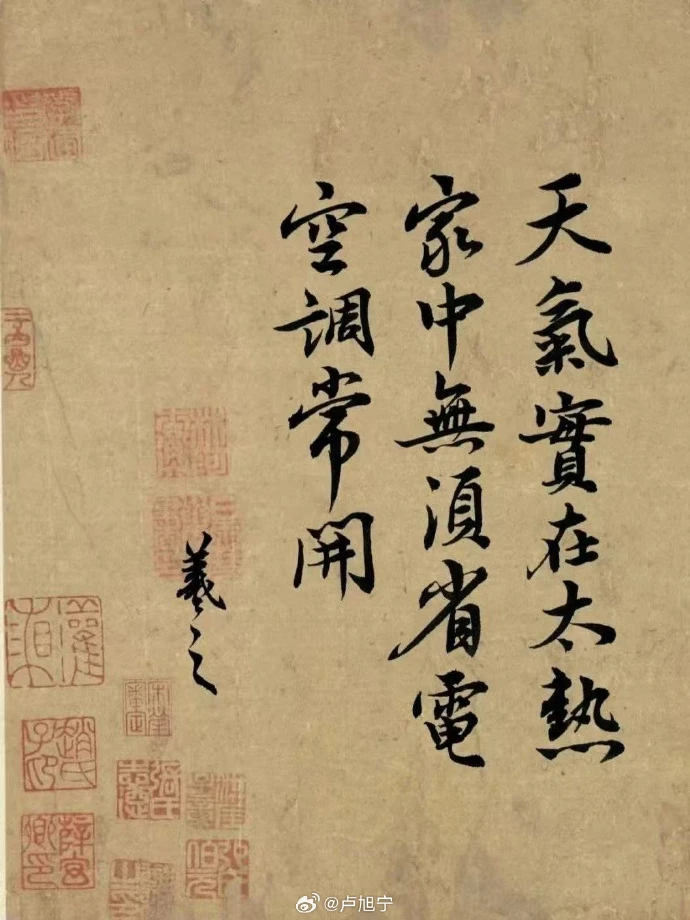 天氣實在太熱
家中無須省電
空調常開
羲之
@卢旭宁